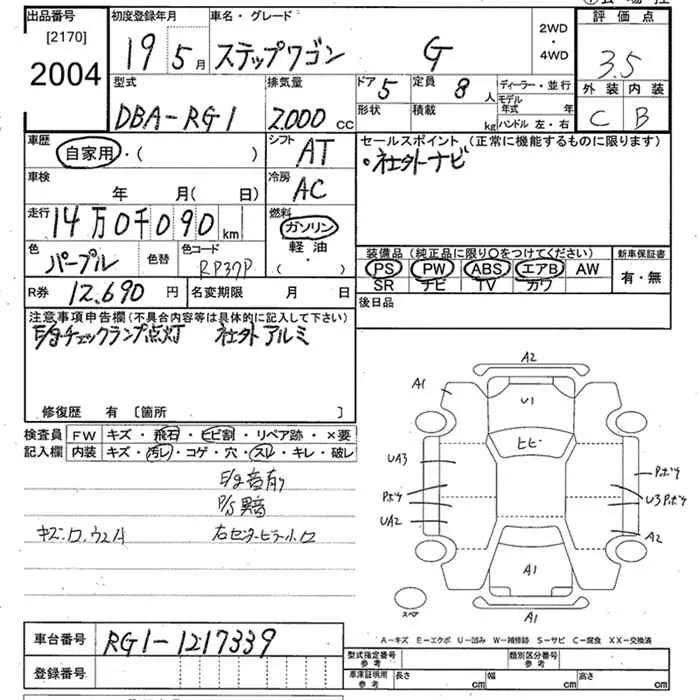 出品番号 初度登録年月 車名・グレード 2WD・4WD 評価点
[2170] 2004 19 5月 ステップワゴン G 3.5
型式 排気量 ドア 5 定員 8人 ディーラー・並行 外装 内装
DBA-RG1 2000 cc 形状 積載 kg モデル年式 年 C B
ハンドル 左・右
車歴 自家用・( ) シフト AT セールスポイント (正常に機能するものに限ります)
・社外ナビ
車検 年 月( 日) 冷房 AC
走行 14万0千090km 燃料 ガソリン 軽油 ( ・ )
色 パープル 色替 色コード RP37P
装備品(純正品に限り○をつけてください) 新車保証書
PS PW ABS エアB AW 有・無
SR ナビ TV カワ
R券 12,690円 名変期限 月 日 後日品
注意事項申告欄(不具合内容等は具体的に記入して下さい)
E/gチェックランプ点灯 社外アルミ
修復歴 有 [箇所 ]
検査員 FW キズ・飛石・ヒビ割・リペア跡・×要
記入欄 内装 キズ・汚レ・コゲ・穴・スレ・キレ・破レ
E/g音有り
P/S異音
キズ.
A2
A1
U1
ヒビ
UA3
Pボツ
Pボツ
U3 Pボツ
UA2
A2
A1
スペア
A1
A-キズ E-エクボ U-凹み W-補修跡 S-サビ C-腐食 XX-交換済
車台番号 RG1-1217339
型式指定番号 参考 類別区分番号 参考
登録番号
車庫証明用 参考 長さ cm 幅 cm 高さ cm